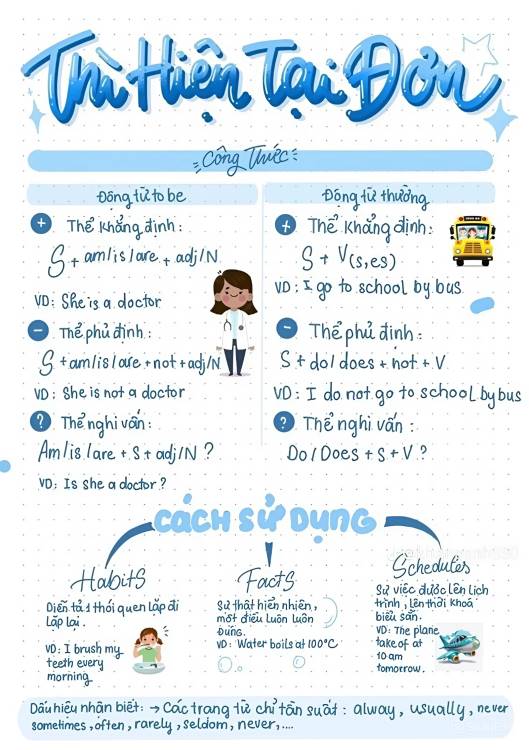 Thì Hiện Tại Đơn
Công Thức:
Động từ to be
+ Thể khẳng định:
S + am/is/are + adj/N
VD: She is a doctor
- Thể phủ định:
S + am/is/are + not + adj/N
VD: She is not a doctor
? Thể nghi vấn:
Am/is/are + S + adj/N ?
VD: Is she a doctor?
Động từ thường
+ Thể khẳng định:
S + V(s,es)
VD: I go to school by bus
- Thể phủ định:
S + do/does + not + V
VD: I do not go to school by bus
? Thể nghi vấn:
Do/Does + S + V ?
CÁCH SỬ DỤNG
Habits
Diễn tả 1 thói quen lặp đi
lặp lại.
VD: I brush my
teeth every
morning
Facts
Sự thật hiển nhiên,
một điều luôn luôn
đúng.
VD: Water boils at 100°C
Schedules
Sự việc được lên lịch
trình, lên thời khoá
biểu sẵn.
VD: The plane
take of at
10 am
tomorrow.
Dấu hiệu nhận biết: → Các trạng từ chỉ tần suất: alway, usually, never
sometimes, often, rarely, seldom, never,....